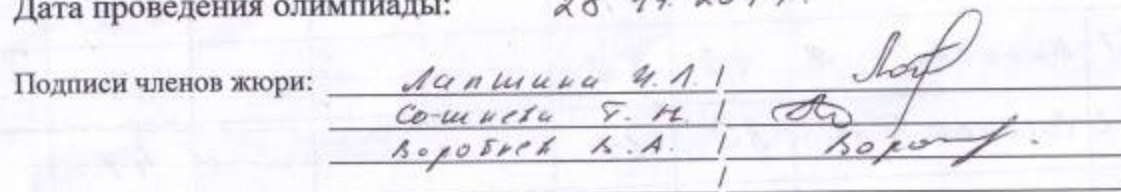 Дата проведения олимпиады: 28. 11.
Подписи членов жюри: Лапшина И. Л. /
Т. Н. /
Воробьев В. А. /
/